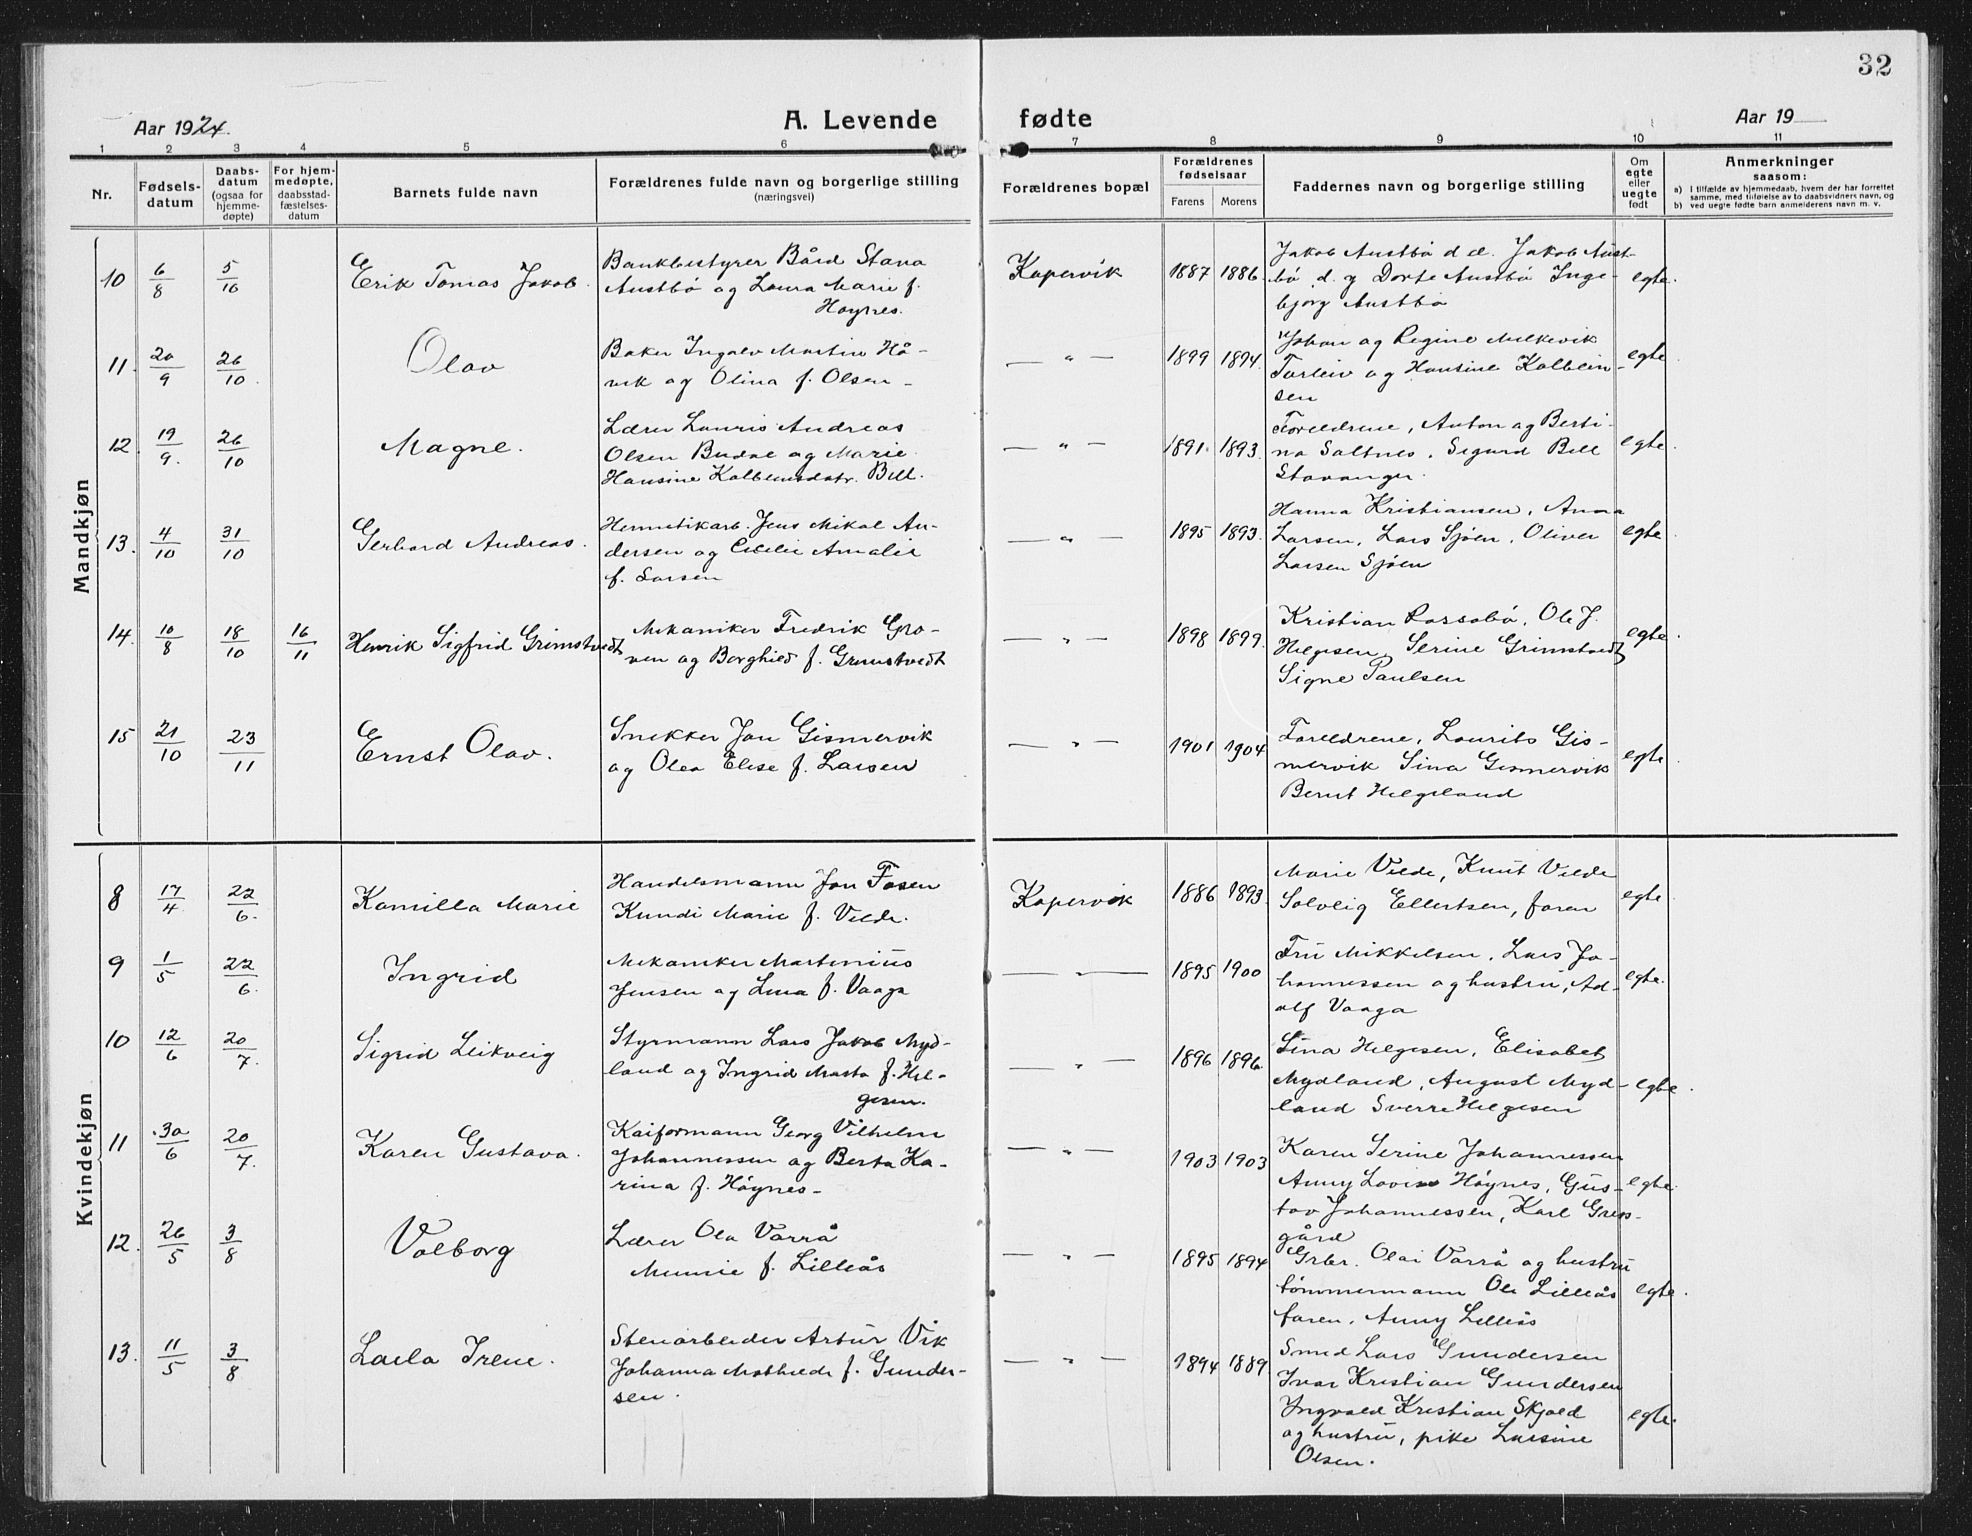 32
Aar 1924.
A. Levende fødte
Aar 19
1 2 3 4 5 6 7 8 9 10 11
Nr.
Fødsels-
datum
Daabs-
datum
(ogsaa for
hjemme-
døpte)
For hjem-
medøpte,
daabsstad-
fæstelses-
datum
Barnets fulde navn
Forældrenes fulde navn og borgerlige stilling
(næringsvei)
Forældrenes bopæl
Forældrenes
fødselsaar
Farens Morens
Faddernes navn og borgerlige stilling
Om
egte
eller
uegte
født
Anmerkninger
saasom:
a) I tilfælde av hjemmedaab, hvem der har forrettet
samme, med tilføielse av to daabsvidners navn, og
b) ved uegte fødte barn anmelderens navn m. v.
Mandkjøn
10 6/8 5/10 Erik Tomas Jakob.
Bankbestyrer Bård Stana
Austbø og Laura Marie f.
Høynes.
Kopervik 1887 1886.
Jakob Austbø d.e. Jakob Aust-
bø d. y Dorte Austbø Inge-
bjorg Austbø
egte.
11. 20/9 26/10. Olav
Baker Ingolv Martin Hå-
vik og Olina f. Olsen -
— " — 1899 1894.
Johan og Regine Melkevik
Torleiv og Hansine Kolbein-
sen
egte
12. 19/9. 26/10 Magne.
Lærer Lauris Andreas
Olsen Budal og Marie
Hansine Kolbeinsdatr. Bell.
— " — 1891. 1893.
Foreldrene, Anton og Berti-
na Saltnes. Sigurd Bell
Stavanger.
egte.
13. 4/10 31/10 Gerhard Andreas.
Hermetikarb. Jens Mikal An-
dersen og Cecilie Amalie
f. Larsen
— " — 1895 1893.
Hanna Kristiansen, Anna
Larsen, Lars Sjøen, Oliver
Larsen Sjøen
egte
14. 10/8 18/10 16/11 Henrik Sigfrid Grimstvedt
Mekaniker Fredrik Gro-
ven og Borghild f. Grimstvedt
— " — 1898 1899.
Kristian Lorsabø, Ole J.
Helgesen, Serine Grimstvedt
Signe Paulsen
egte.
15 21/10 23/11 Ernst Olav.
Snekker Jon Gismervik
og Olea Elise f. Larsen
— " — 1901 1904
Foreldrene, Laurits Gis-
mervik Sina Gismervik
Bernt Helgeland
egte
Kvindekjøn
8 17/4 22/6. Kamilla Marie
Handelsmann Jon Fosen
Kundi Marie f. Velde.
Kopervik 1886 1893.
Marie Velde, Knut Velde
Solveig Ellertsen, faren
egte
9 1/5 22/6. Ingrid
Mekaniker Martinius
Jensen og Lina f. Vaaga
— " — 1895 1900
Fru Mikkelsen. Lars Jo-
hannessen og hustru, Ad-
olf Vaaga
egte.
10 12/6 20/7. Sigrid Leikveig
Styrmann Lars Jakob Myd-
land og Ingrid Marta f. Hel-
gesen.
— " — 1896 1896.
Lina Helgesen, Elisabet
Mydland, August Myd-
land Sverre Helgesen
egte.
11 30/6 20/7. Karen Gustava.
Kaiformann Georg Vilhelm
Johannessen og Berta Ka-
rina f. Høynes-
— " — 1903 1903
Karen Serine Johannessen
Anny Lovise Høynes, Gus-
tav Johannessen, Karl Gres-
gård
egte.
12. 26/5 3/8 Valborg
Lærer Ola Varrå
Minnie f. Lilleås
— " — 1895 1894
Grbr. Olai Varrå og hustru
tømmermann Ole Lilleås
faren, Anny Lilleås
egte.
13. 11/5 3/8 Laila Irene.
Stenarbeider Artur Vik
Johanna Mathilde f. Gunder-
sen.
— " — 1894 1889.
Smed Lars Gundersen
Ivar Kristian Gundersen
Ingvald Kristian Skjold
og hustru, pike Larsine
Olsen.
egte.